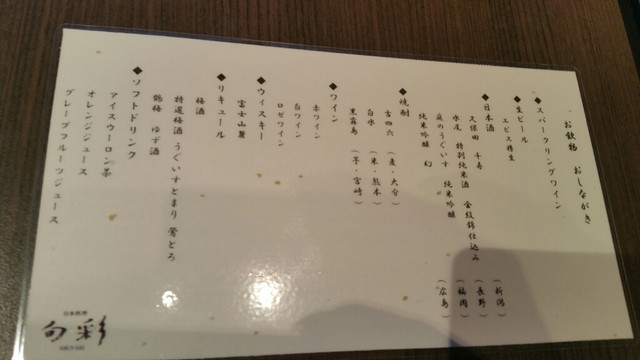 お飲物 おしながき
◆スパークリングワイン
◆生ビール
エビス樽生
◆日本酒
久保田 千寿 （新潟）
水尾 特別純米酒 金紋錦仕込み （長野）
庭のうぐいす 純米吟醸 （福岡）
純米吟醸 幻 （広島）
◆焼酎
吉四六 （麦・大分）
白水 （米・熊本）
黒霧島 （芋・宮崎）
◆ワイン
赤ワイン
白ワイン
ロゼワイン
◆ウィスキー
富士山麓
◆リキュール
梅酒
特選梅酒 うぐいすとまり 鶯とろ
鶴梅 ゆず酒
◆ソフトドリンク
アイスウーロン茶
オレンジジュース
グレープフルーツジュース
日本料理
旬彩